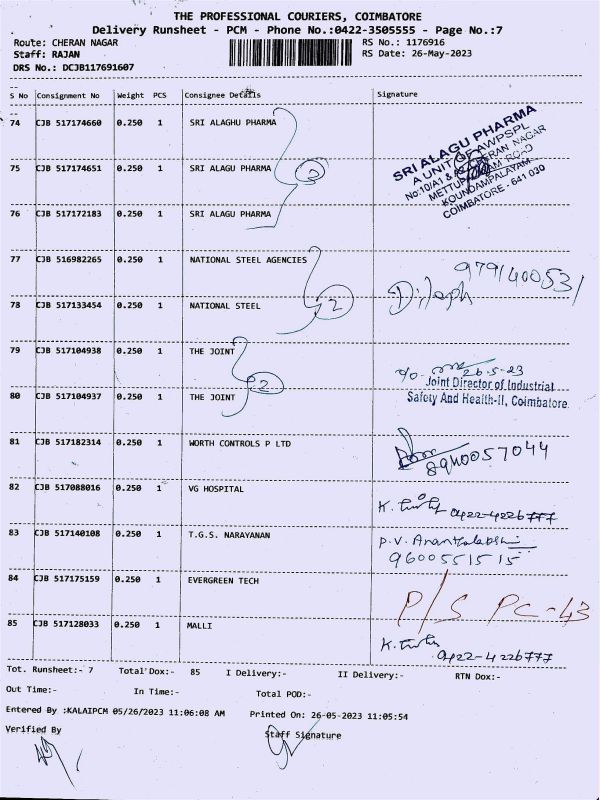 THE PROFESSIONAL COURIERS, COIMBATORE
Delivery Runsheet - PCM - Phone No.:0422-3505555 - Page No.:7
Route: CHERAN NAGAR RS No.: 1176916
Staff: RAJAN RS Date: 26-May-2023
DRS No.: DCJB117691607
S No Consignment No Weight PCS Consignee Details Signature
74 CJB 517174660 0.250 1 SRI ALAGHU PHARMA
SRI ALAGU PHARMA
A UNIT OF AWPSPL
No:10/A1 & CHERAN NAGAR
METTUPALAYAM ROAD
KOUNDAMPALAYAM
COIMBATORE - 641 030
75 CJB 517174651 0.250 1 SRI ALAGU PHARMA 3
76 CJB 517172183 0.250 1 SRI ALAGU PHARMA
77 CJB 516982265 0.250 1 NATIONAL STEEL AGENCIES 9791400531
78 CJB 517133454 0.250 1 NATIONAL STEEL 2 Dileph
79 CJB 517104938 0.250 1 THE JOINT 26-5-23
2 Joint Director of Industrial
80 CJB 517104937 0.250 1 THE JOINT Safety And Health-II, Coimbatore.
81 CJB 517182314 0.250 1 WORTH CONTROLS P LTD 8940057044
82 CJB 517088016 0.250 1 VG HOSPITAL K. 0422-4226777
83 CJB 517140108 0.250 1 T.G.S. NARAYANAN P.V.
9600551515
84 CJB 517175159 0.250 1 EVERGREEN TECH P/S PC-43
85 CJB 517128033 0.250 1 MALLI K. 0422-4226777
Tot. Runsheet:- 7 Total Dox:- 85 I Delivery:- II Delivery:- RTN Dox:-
Out Time:- In Time:- Total POD:-
Entered By :KALAIPCM 05/26/2023 11:06:08 AM Printed On: 26-05-2023 11:05:54
Verified By Staff Signature